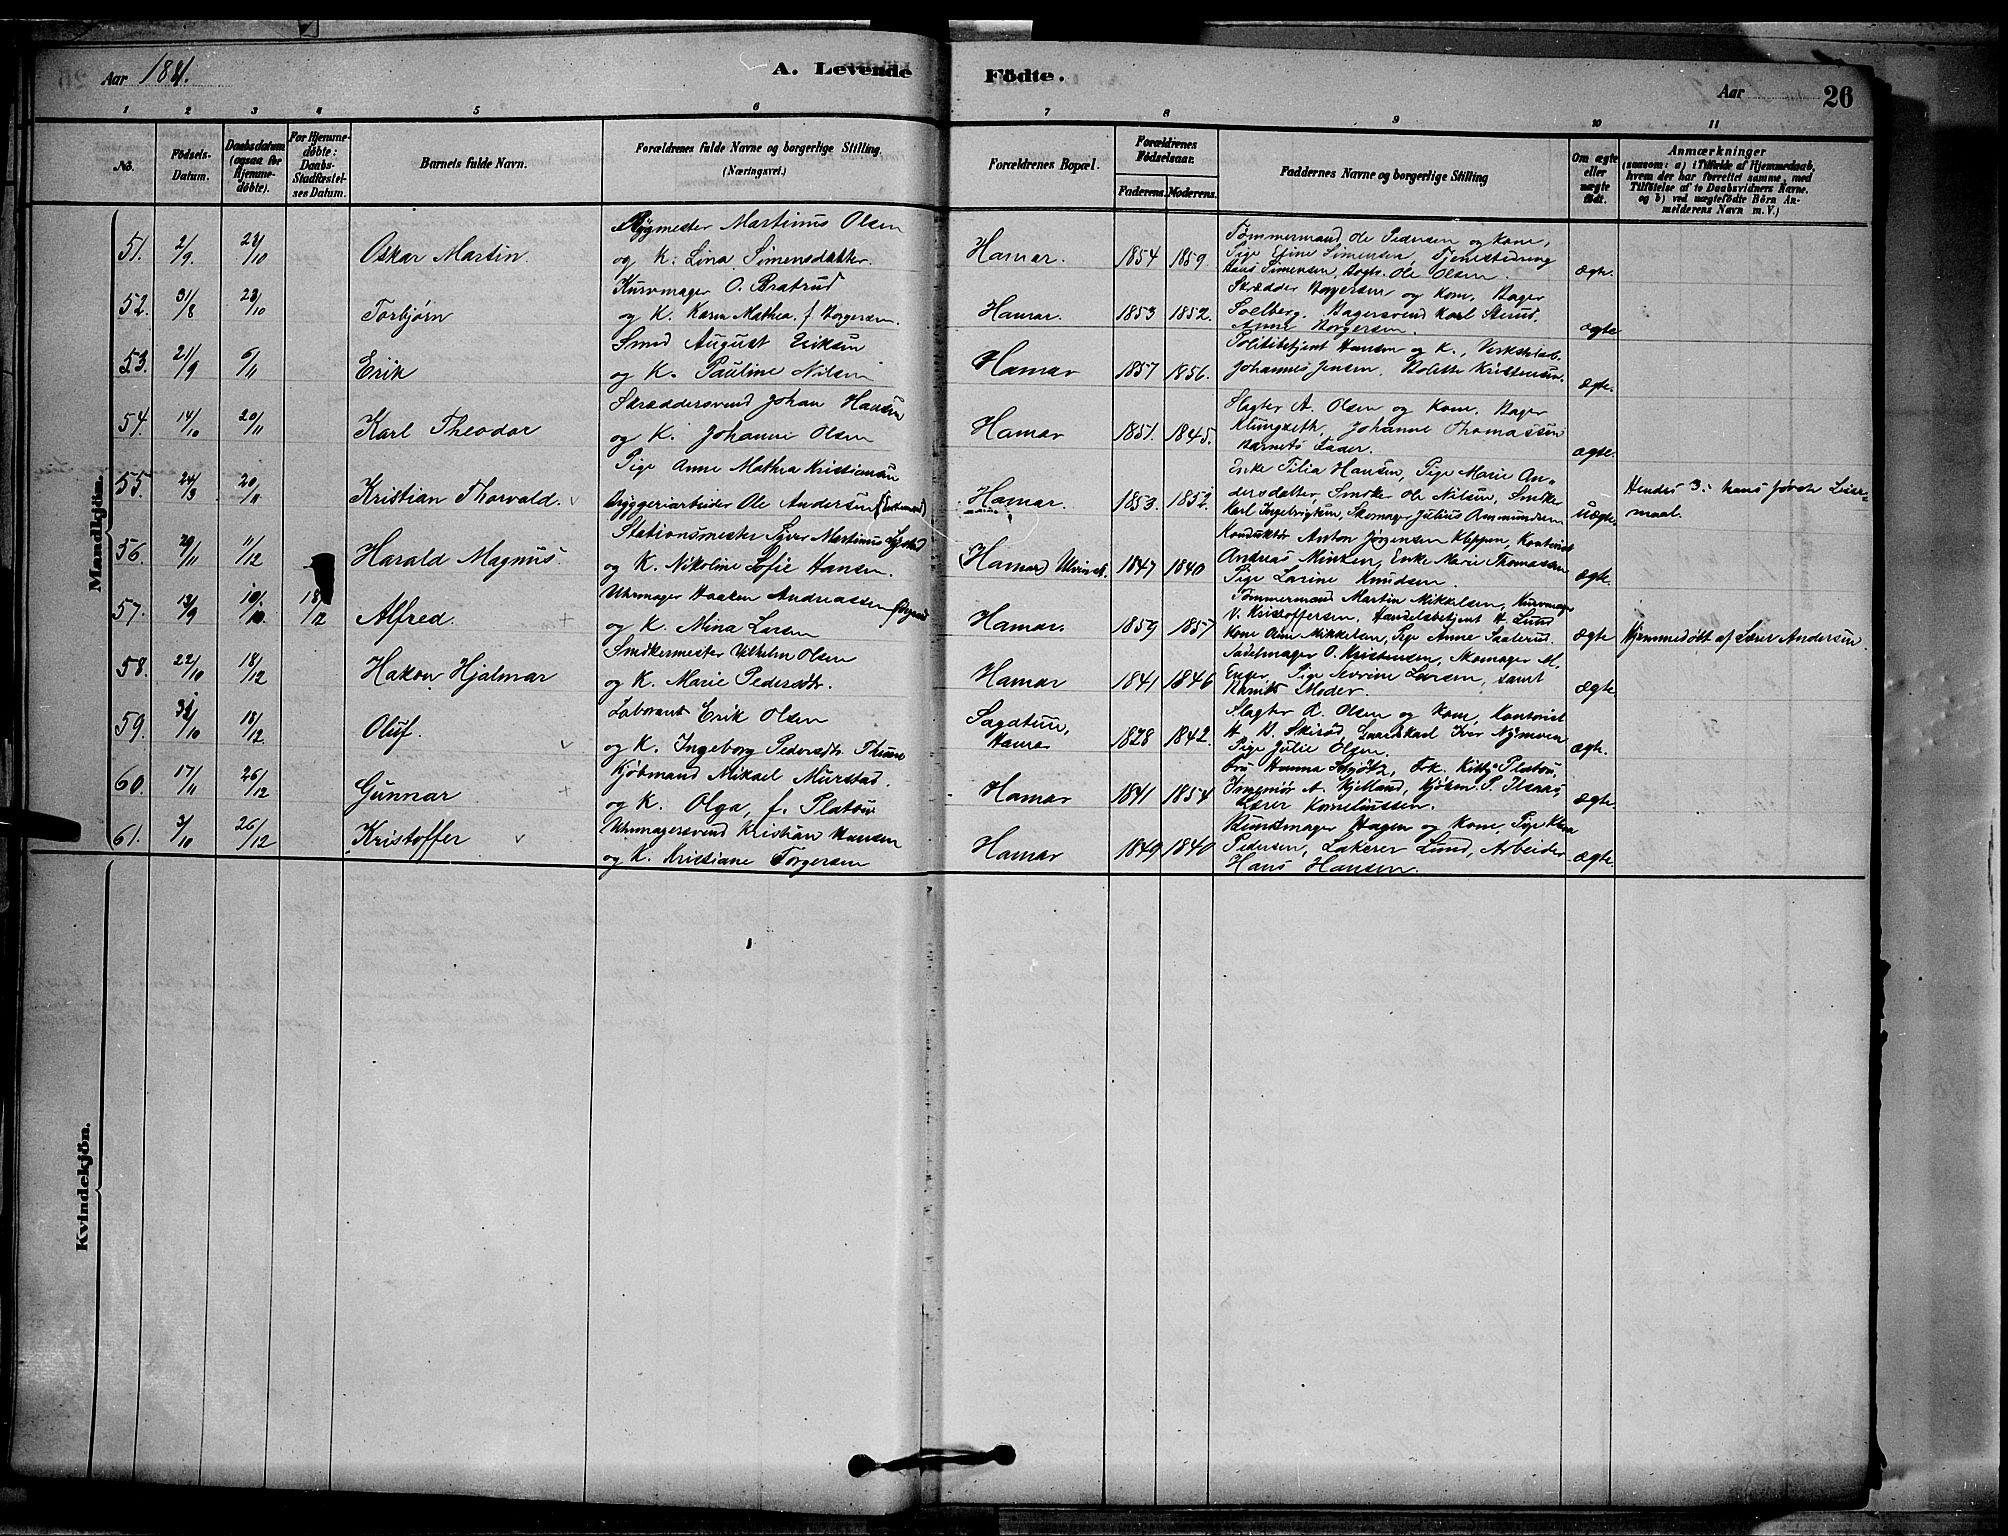 Aar 1881.
A. Levende Födte.
Aar
26
1 2 3 4 5 6 7 8 9 10 11
No.
Födsels-Datum.
Daabsdatum (ogsaa for Hjemmedöbte).
For Hjemmedöbte: Daabs-Stadfæstelses Datum.
Barnets fulde Navn.
Forældrenes fulde Navne og borgerlige Stilling (Næringsvei.)
Forældrenes Bopæl.
Forældrenes Födselsaar.
Faderens. Moderens.
Faddernes Navne og borgerlige Stilling
Om ægte eller uægte födt.
Anmærkninger
(saasom: a) i Tilfælde af Hjemmedaab, hvem der har forrettet samme, med Tilföielse af to Daabsvidners Navne, og b) ved uægtefödte Börn Anmelderens Navn m. V.)
Mandkjön.
51. 2/9 23/10 Oskar Martin. Bygmester Martinus Olsen
og K. Lina Simensdatter. Hamar. 1854 1859. Tømmermand Ole Pedersen og Kone,
Pige Eline Simensen, Tjenestedreng
Hans Simensen, Ole Olsen. ægte.
52. 31/8 23/10 Torbjørn Kurvmager O. Bratrud
og K. Karen Mathea, f. Borgersen. Hamar. 1853 1852. Skrædder Borgersen og Kone, Bager
Solberg, Bagersvend Karl Sterud,
Anne Borgersen. ægte
53. 21/9 6/11 Erik Smed August Eriksen
og K. Pauline Nilsen Hamar 1857 1856. Politibetjent Hansen og K.,
Johannes Jensen, Bolette Kristensen. ægte.
54. 14/10 20/11 Karl Theodor Skræddersvend Johan Hansen
og K. Johanne Olsen Hamar 1851. 1845. Slagter A. Olsen og Kone, Bager
Klungseth, Johanne Thomassen
Barnets Fader. ægte.
55. 24/3 20/11 Kristian Thorvald. Pige Anne Mathea Kristiansen
Bryggeriarbeider Ole Andersen Hamar. 1853. 1852. Enke Tilia Hansen, Pige Marie An-
dersdatter, Smeker Ole Nilsen, Smeker
Karl Ingebrigtsen, Skomager Julius Ammundsen uægte Hendes 3. hans første Leier-
maal.
56. 20/11 11/12 Harald Magnus. Stationsmester Martinus
og K. Nikoline Sofie Hansen. (Hamar) 1847 1840 Konduktør Anton Jørgensen Kleppen, Kontorist
Andreas Minken, Enke Marie Thomassen
Pige Larine Knudsen. ægte.
57. 13/9 10/10 18/12 Alfred. Uhrmager Haaken Andreassen
og K. Mina Larsen Hamar. 1859 1857 Tømmermand Martin Mikkelsen, Kurvmager
V. Kristoffersen, Handelsbetjent H. Lund
Kone Mikkelsen, Pige Anne Saalerud. ægte Hjemmedøbt af Lærer Andersen.
58. 22/10 18/12 Hakon Hjalmar Smekermester Vilhelm Olsen
og K. Marie Pedersdtr. Hamar 1841 1846 Sadelmager O. Kristensen, Skomager M.
Enger, Pige Severine Larsen, samt
Barnets Moder. ægte
59. 31/10 18/12. Oluf. Laborant Erik Olsen
og K. Ingeborg Pedersdtr. Sagatun,
Hamar 1828 1842. Slagter A. Olsen og Kone, Kontorist
Skirød, Gaardskarl Iver Nymoen
Pige Julie Olsen. ægte.
60. 17/11 26/12 Gunnar Kjøbmand Mikael Mürstad.
og K. Olga, f. Platou Hamar 1841 1854 Fru Hanna Schjøtz, Frk. Kitty Platou,
Ingeniør A. Kjelland, Kjøbm. P. Ilsaas
Lærer Korneliussen. ægte.
61. 3/10 26/12 Kristoffer Uhrmagersvend Kristian Hansen
og K. Kristiane Torgersen Hamar 1849 1840 Bundtmager Hagen og Kone, Pige
Pedersen, Lakerer Lund, Arbeider
Hans Hansen. ægte.
Kvindekjön.